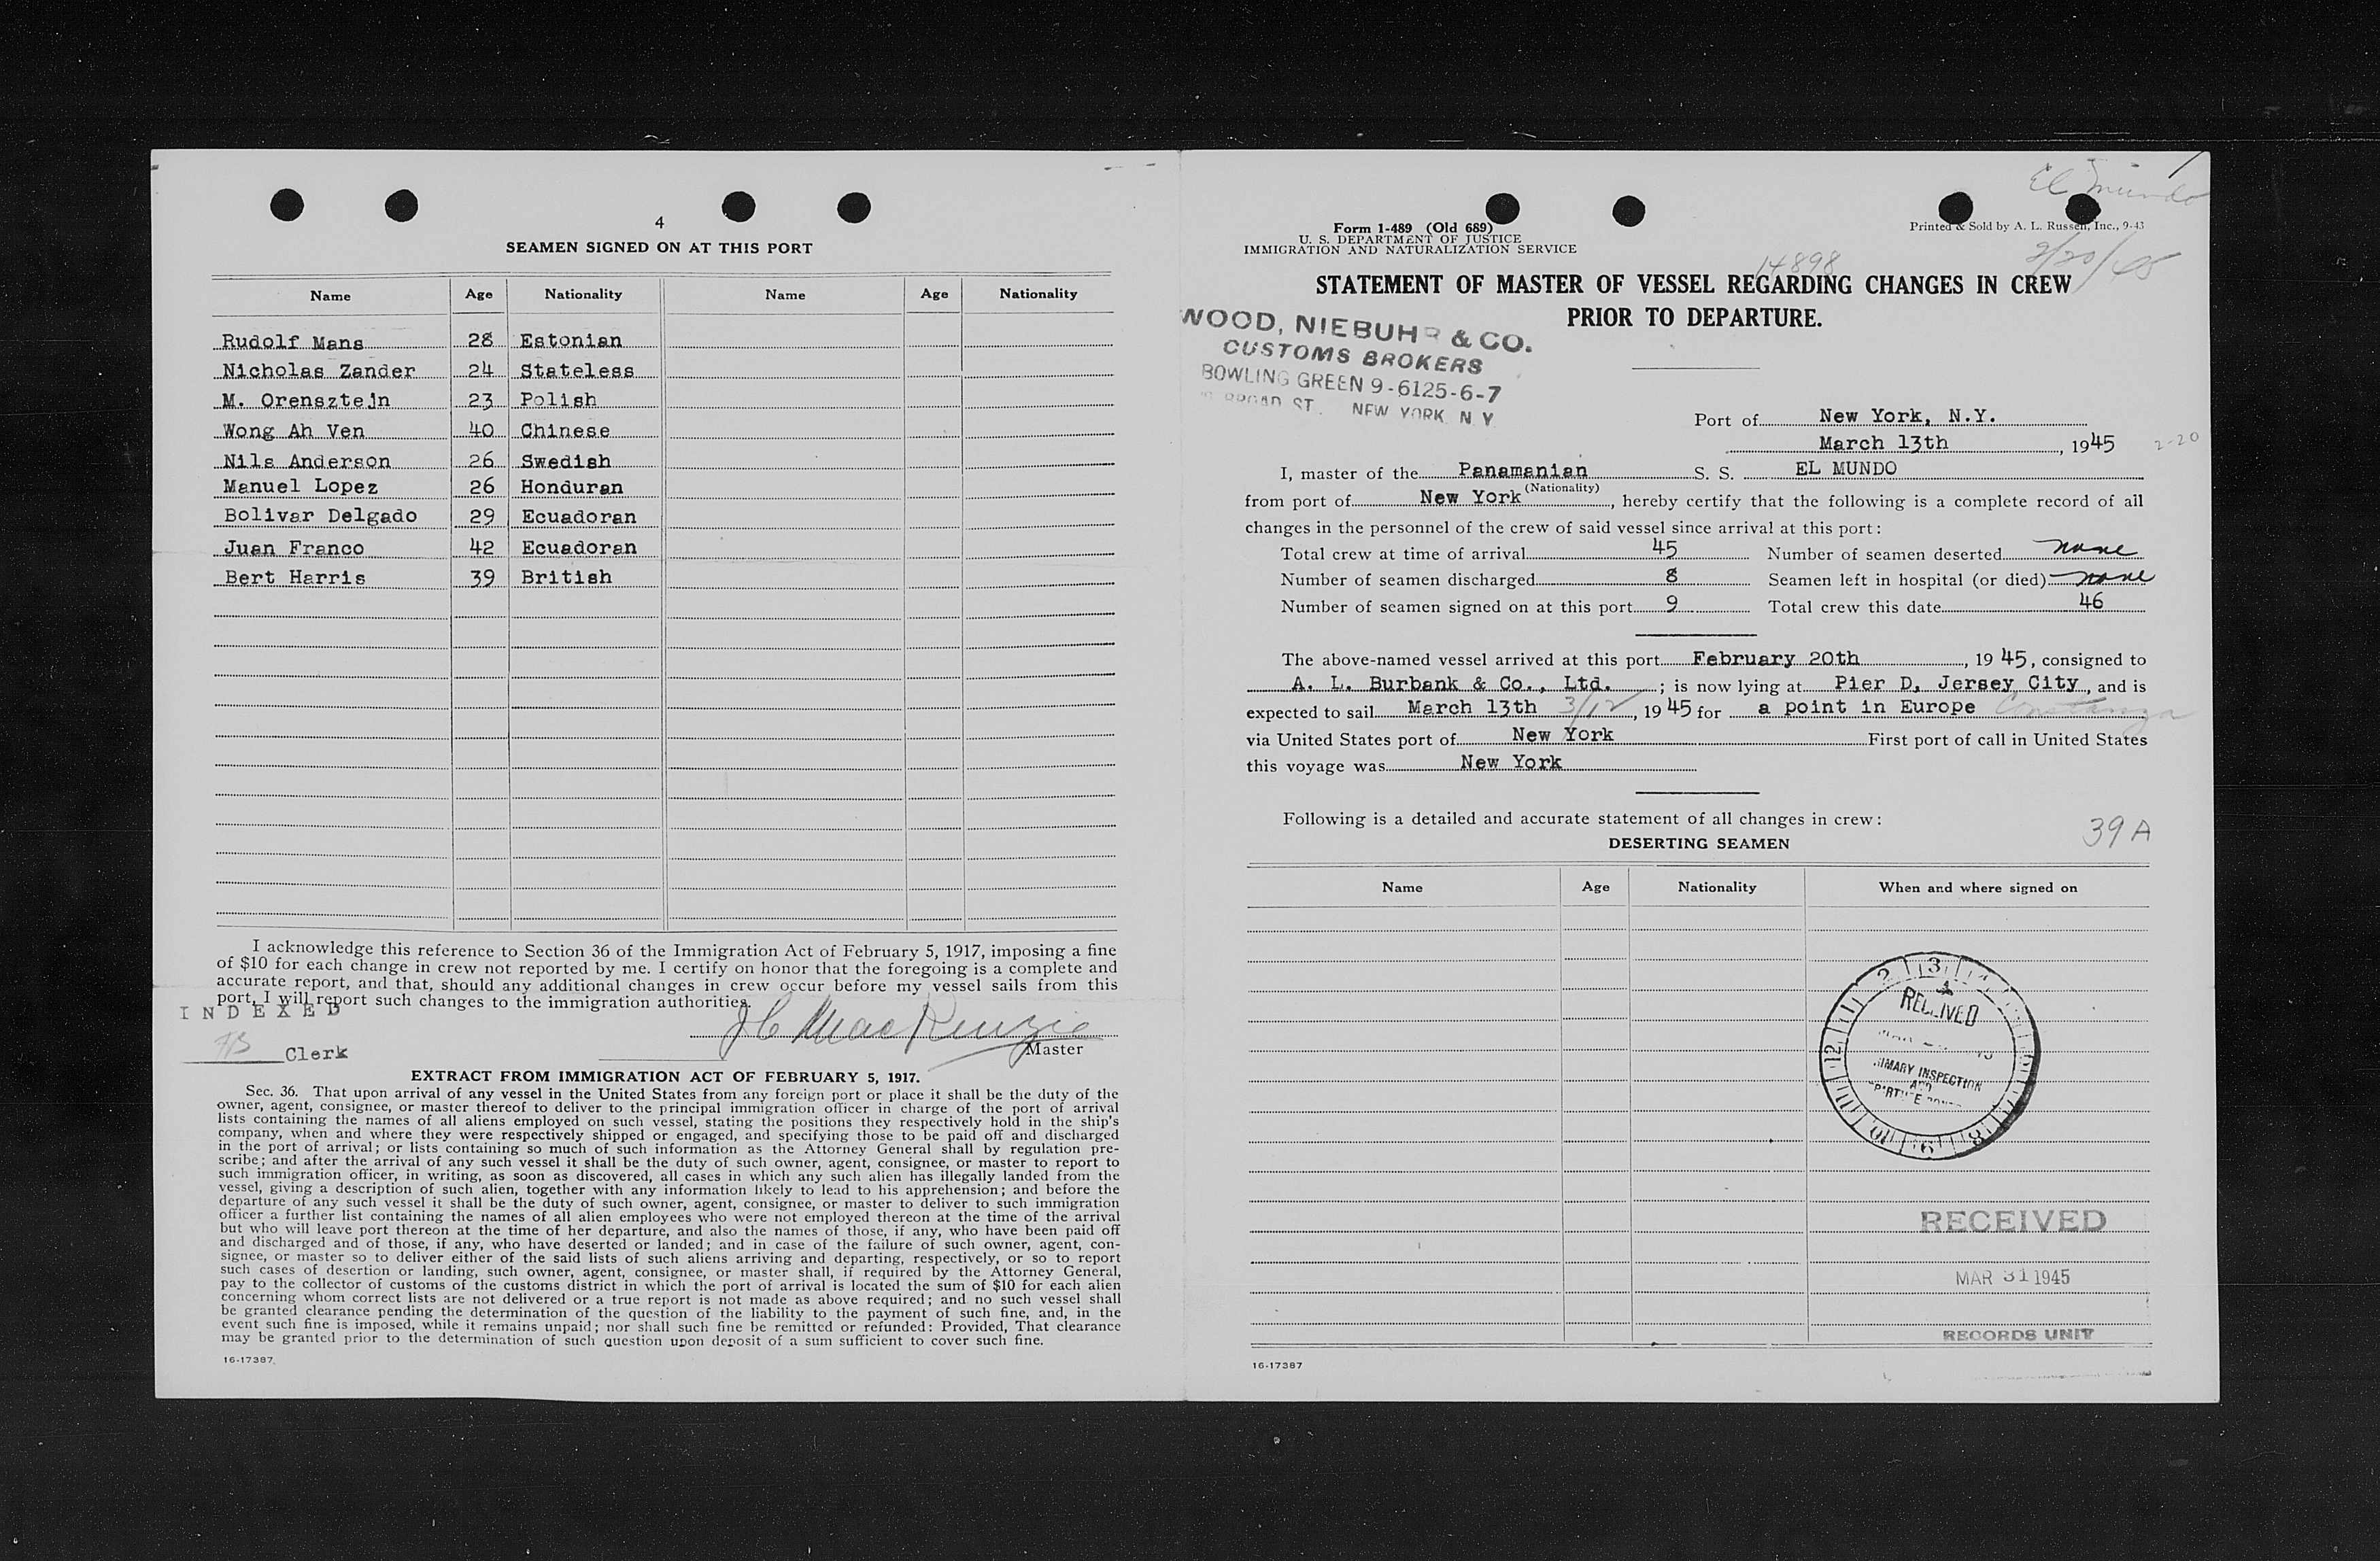 4
SEAMEN SIGNED ON AT THIS PORT
Name Age Nationality Name Age Nationality
Rudolf Mans 28 Estonian
Nicholas Zander 24 Stateless
M. Orensztejn 23 Polish
Wong Ah Ven 40 Chinese
Nils Anderson 26 Swedish
Manuel Lopez 26 Honduran
Bolivar Delgado 29 Ecuadoran
Juan Franco 42 Ecuadoran
Bert Harris 39 British
I acknowledge this reference to Section 36 of the Immigration Act of February 5, 1917, imposing a fine
of $10 for each change in crew not reported by me. I certify on honor that the foregoing is a complete and
accurate report, and that, should any additional changes in crew occur before my vessel sails from this
port, I will report such changes to the immigration authorities.
INDEXED
Clerk
J C MacKenzie
Master
EXTRACT FROM IMMIGRATION ACT OF FEBRUARY 5, 1917.
Sec. 36. That upon arrival of any vessel in the United States from any foreign port or place it shall be the duty of the
owner, agent, consignee, or master thereof to deliver to the principal immigration officer in charge of the port of arrival
lists containing the names of all aliens employed on such vessel, stating the positions they respectively hold in the ship's
company, when and where they were respectively shipped or engaged, and specifying those to be paid off and discharged
in the port of arrival; or lists containing so much of such information as the Attorney General shall by regulation pre-
scribe; and after the arrival of any such vessel it shall be the duty of such owner, agent, consignee, or master to report to
such immigration officer, in writing, as soon as discovered, all cases in which any such alien has illegally landed from the
vessel, giving a description of such alien, together with any information likely to lead to his apprehension; and before the
departure of any such vessel it shall be the duty of such owner, agent, consignee, or master to deliver to such immigration
officer a further list containing the names of all alien employees who were not employed thereon at the time of the arrival
but who will leave port thereon at the time of her departure, and also the names of those, if any, who have been paid off
and discharged and of those, if any, who have deserted or landed; and in case of the failure of such owner, agent, con-
signee, or master so to deliver either of the said lists of such aliens arriving and departing, respectively, or so to report
such cases of desertion or landing, such owner, agent, consignee, or master shall, if required by the Attorney General,
pay to the collector of customs of the customs district in which the port of arrival is located the sum of $10 for each alien
concerning whom correct lists are not delivered or a true report is not made as above required; and no such vessel shall
be granted clearance pending the determination of the question of the liability to the payment of such fine, and, in the
event such fine is imposed, while it remains unpaid; nor shall such fine be remitted or refunded: Provided, That clearance
may be granted prior to the determination of such question upon deposit of a sum sufficient to cover such fine.
16-17387
El Mundo
Form 1-489 (Old 689)
U. S. DEPARTMENT OF JUSTICE
IMMIGRATION AND NATURALIZATION SERVICE
Printed & Sold by A. L. Russell, Inc., 9-43
2/20/45
14898
STATEMENT OF MASTER OF VESSEL REGARDING CHANGES IN CREW
PRIOR TO DEPARTURE.
WOOD, NIEBUHR & CO.
CUSTOMS BROKERS
BOWLING GREEN 9-6125-6-7
BROAD ST. NEW YORK N Y
Port of New York, N.Y.
March 13th, 1945 2-20
I, master of the Panamanian S. S. EL MUNDO
(Nationality)
from port of New York, hereby certify that the following is a complete record of all
changes in the personnel of the crew of said vessel since arrival at this port:
Total crew at time of arrival 45 Number of seamen deserted none
Number of seamen discharged 8 Seamen left in hospital (or died) none
Number of seamen signed on at this port 9 Total crew this date 46
The above-named vessel arrived at this port February 20th, 1945, consigned to
A. L. Burbank & Co., Ltd.; is now lying at Pier D, Jersey City, and is
expected to sail March 13th 3/12, 1945 for a point in Europe
via United States port of New York First port of call in United States
this voyage was New York
Following is a detailed and accurate statement of all changes in crew:
39 A
DESERTING SEAMEN
Name Age Nationality When and where signed on
RECEIVED
INSPECTION
AND
RECEIVED
MAR 31 1945
RECORDS UNIT
16-17387